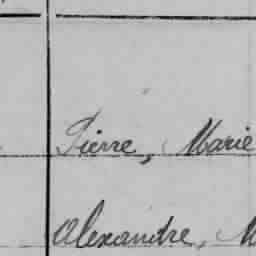 Pierre, Marie
Alexandre, M